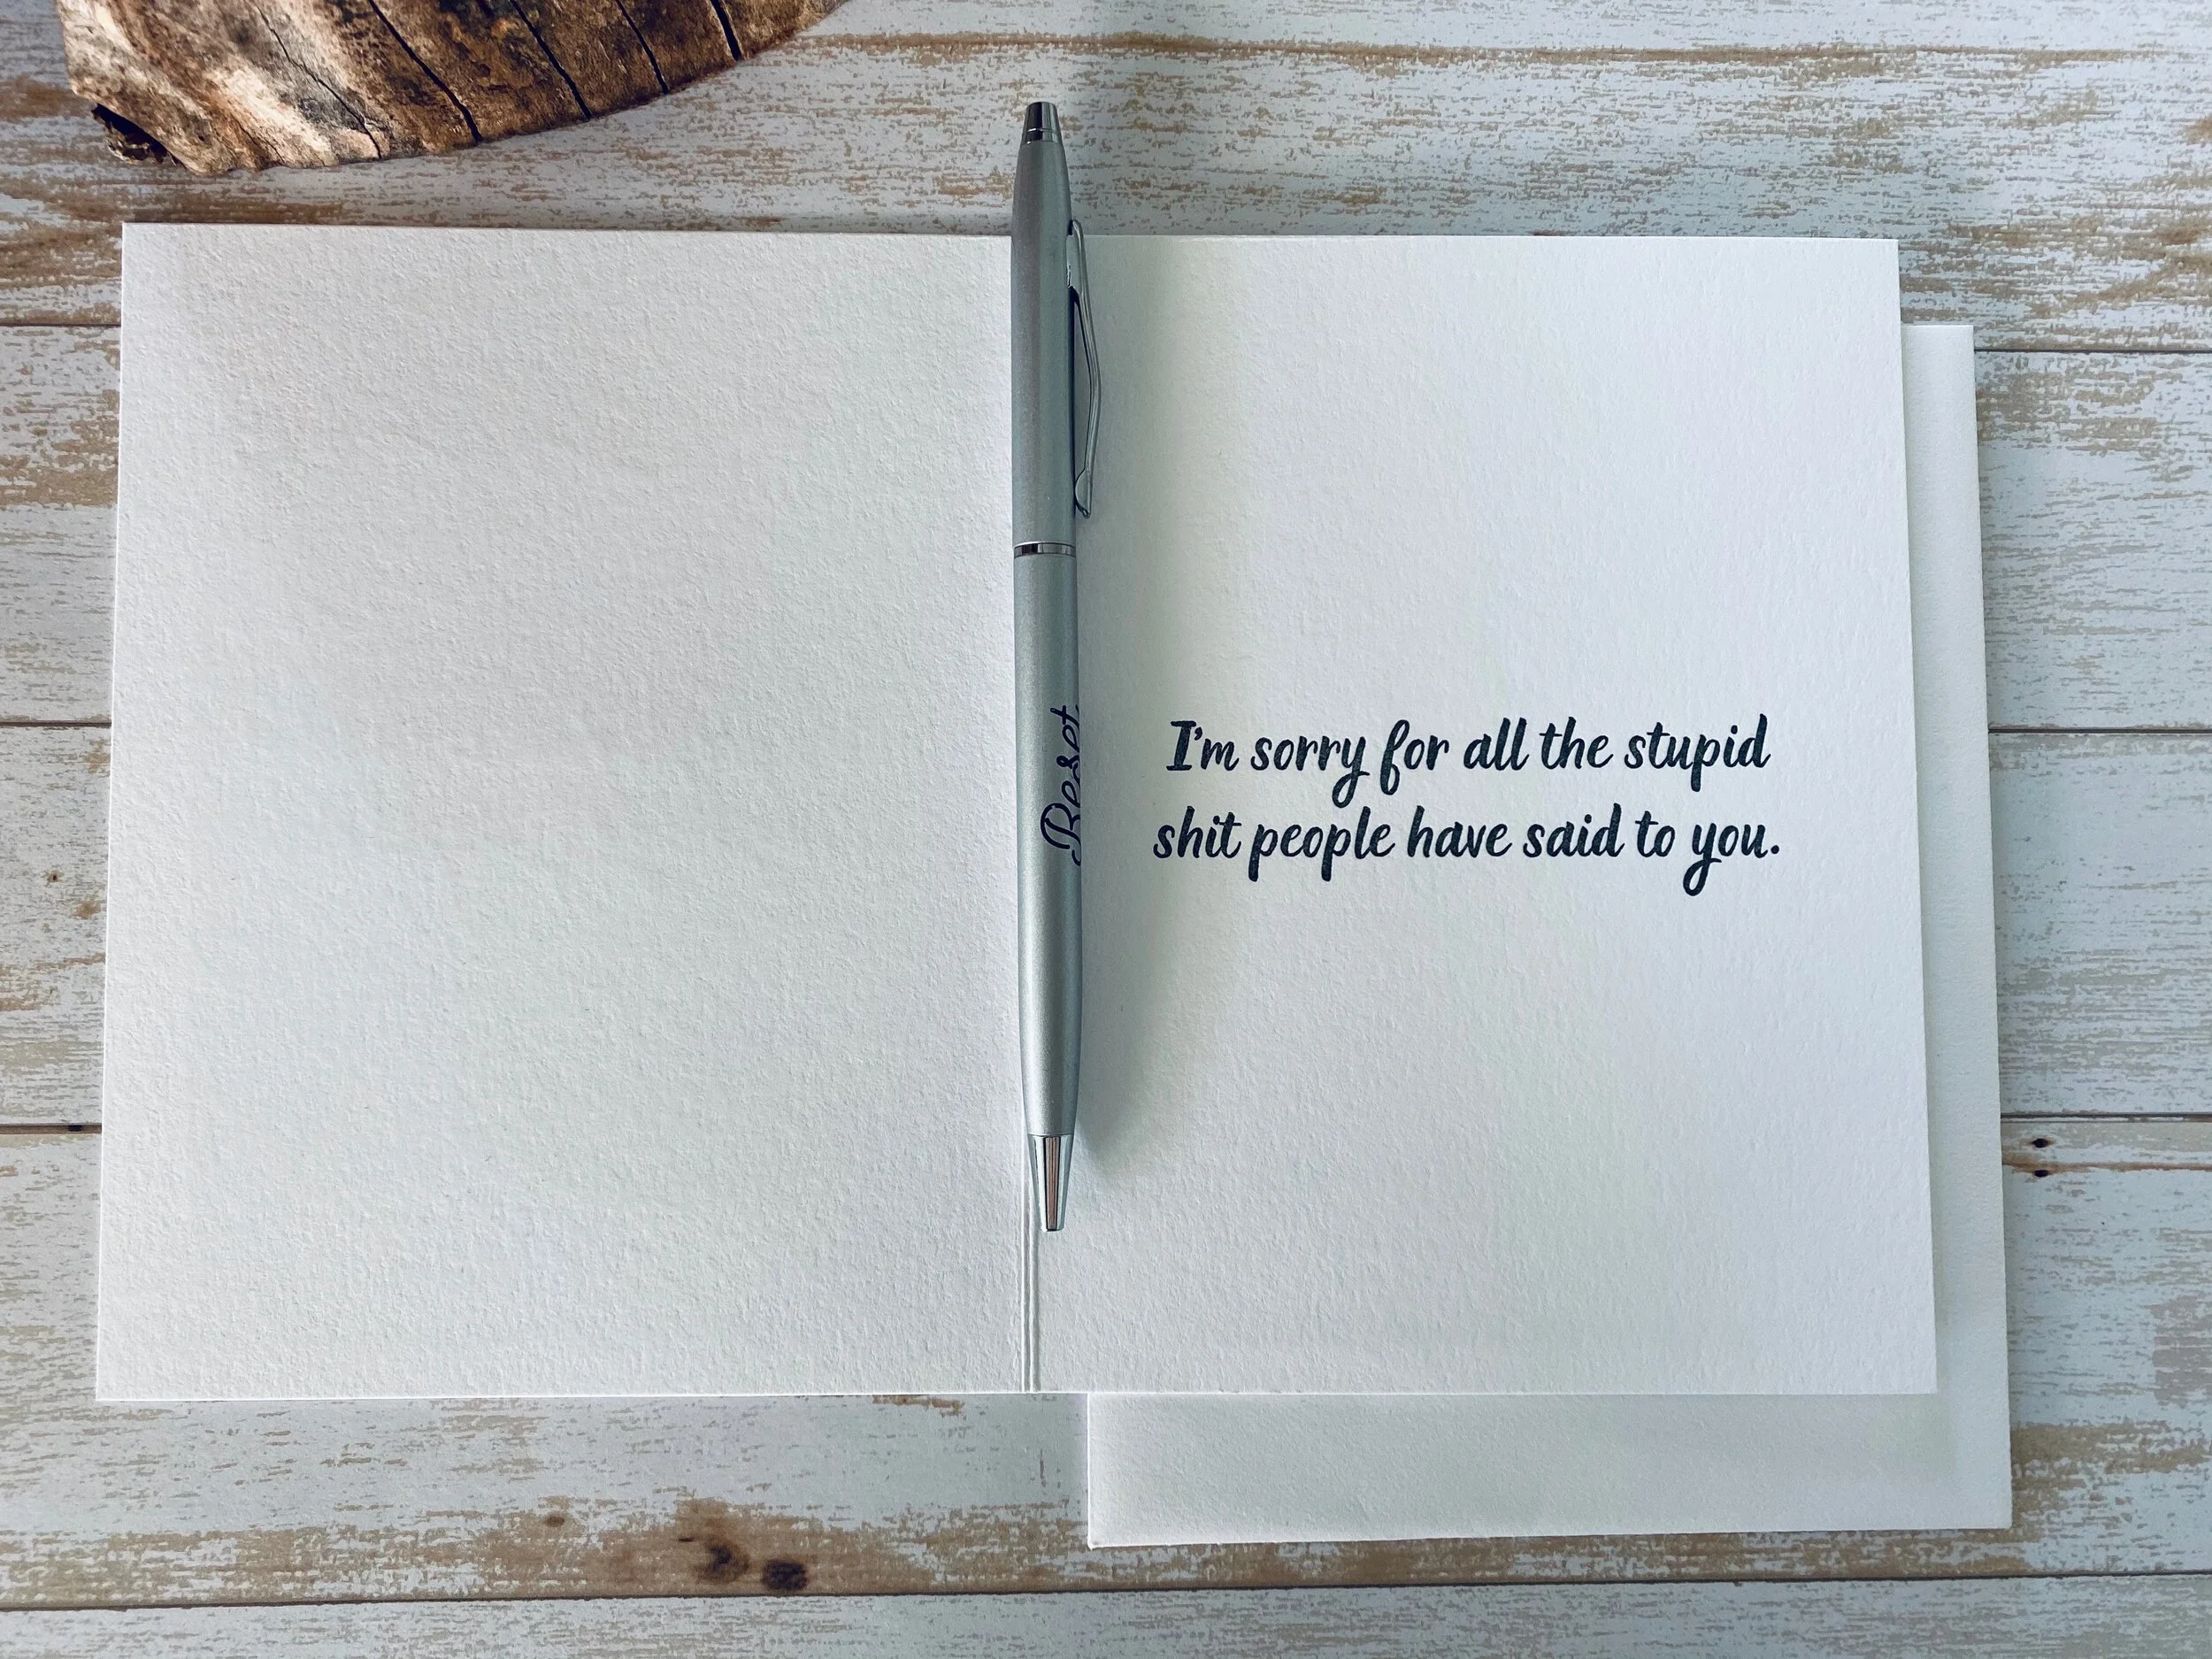 Beset
I'm sorry for all the stupid
shit people have said to you.